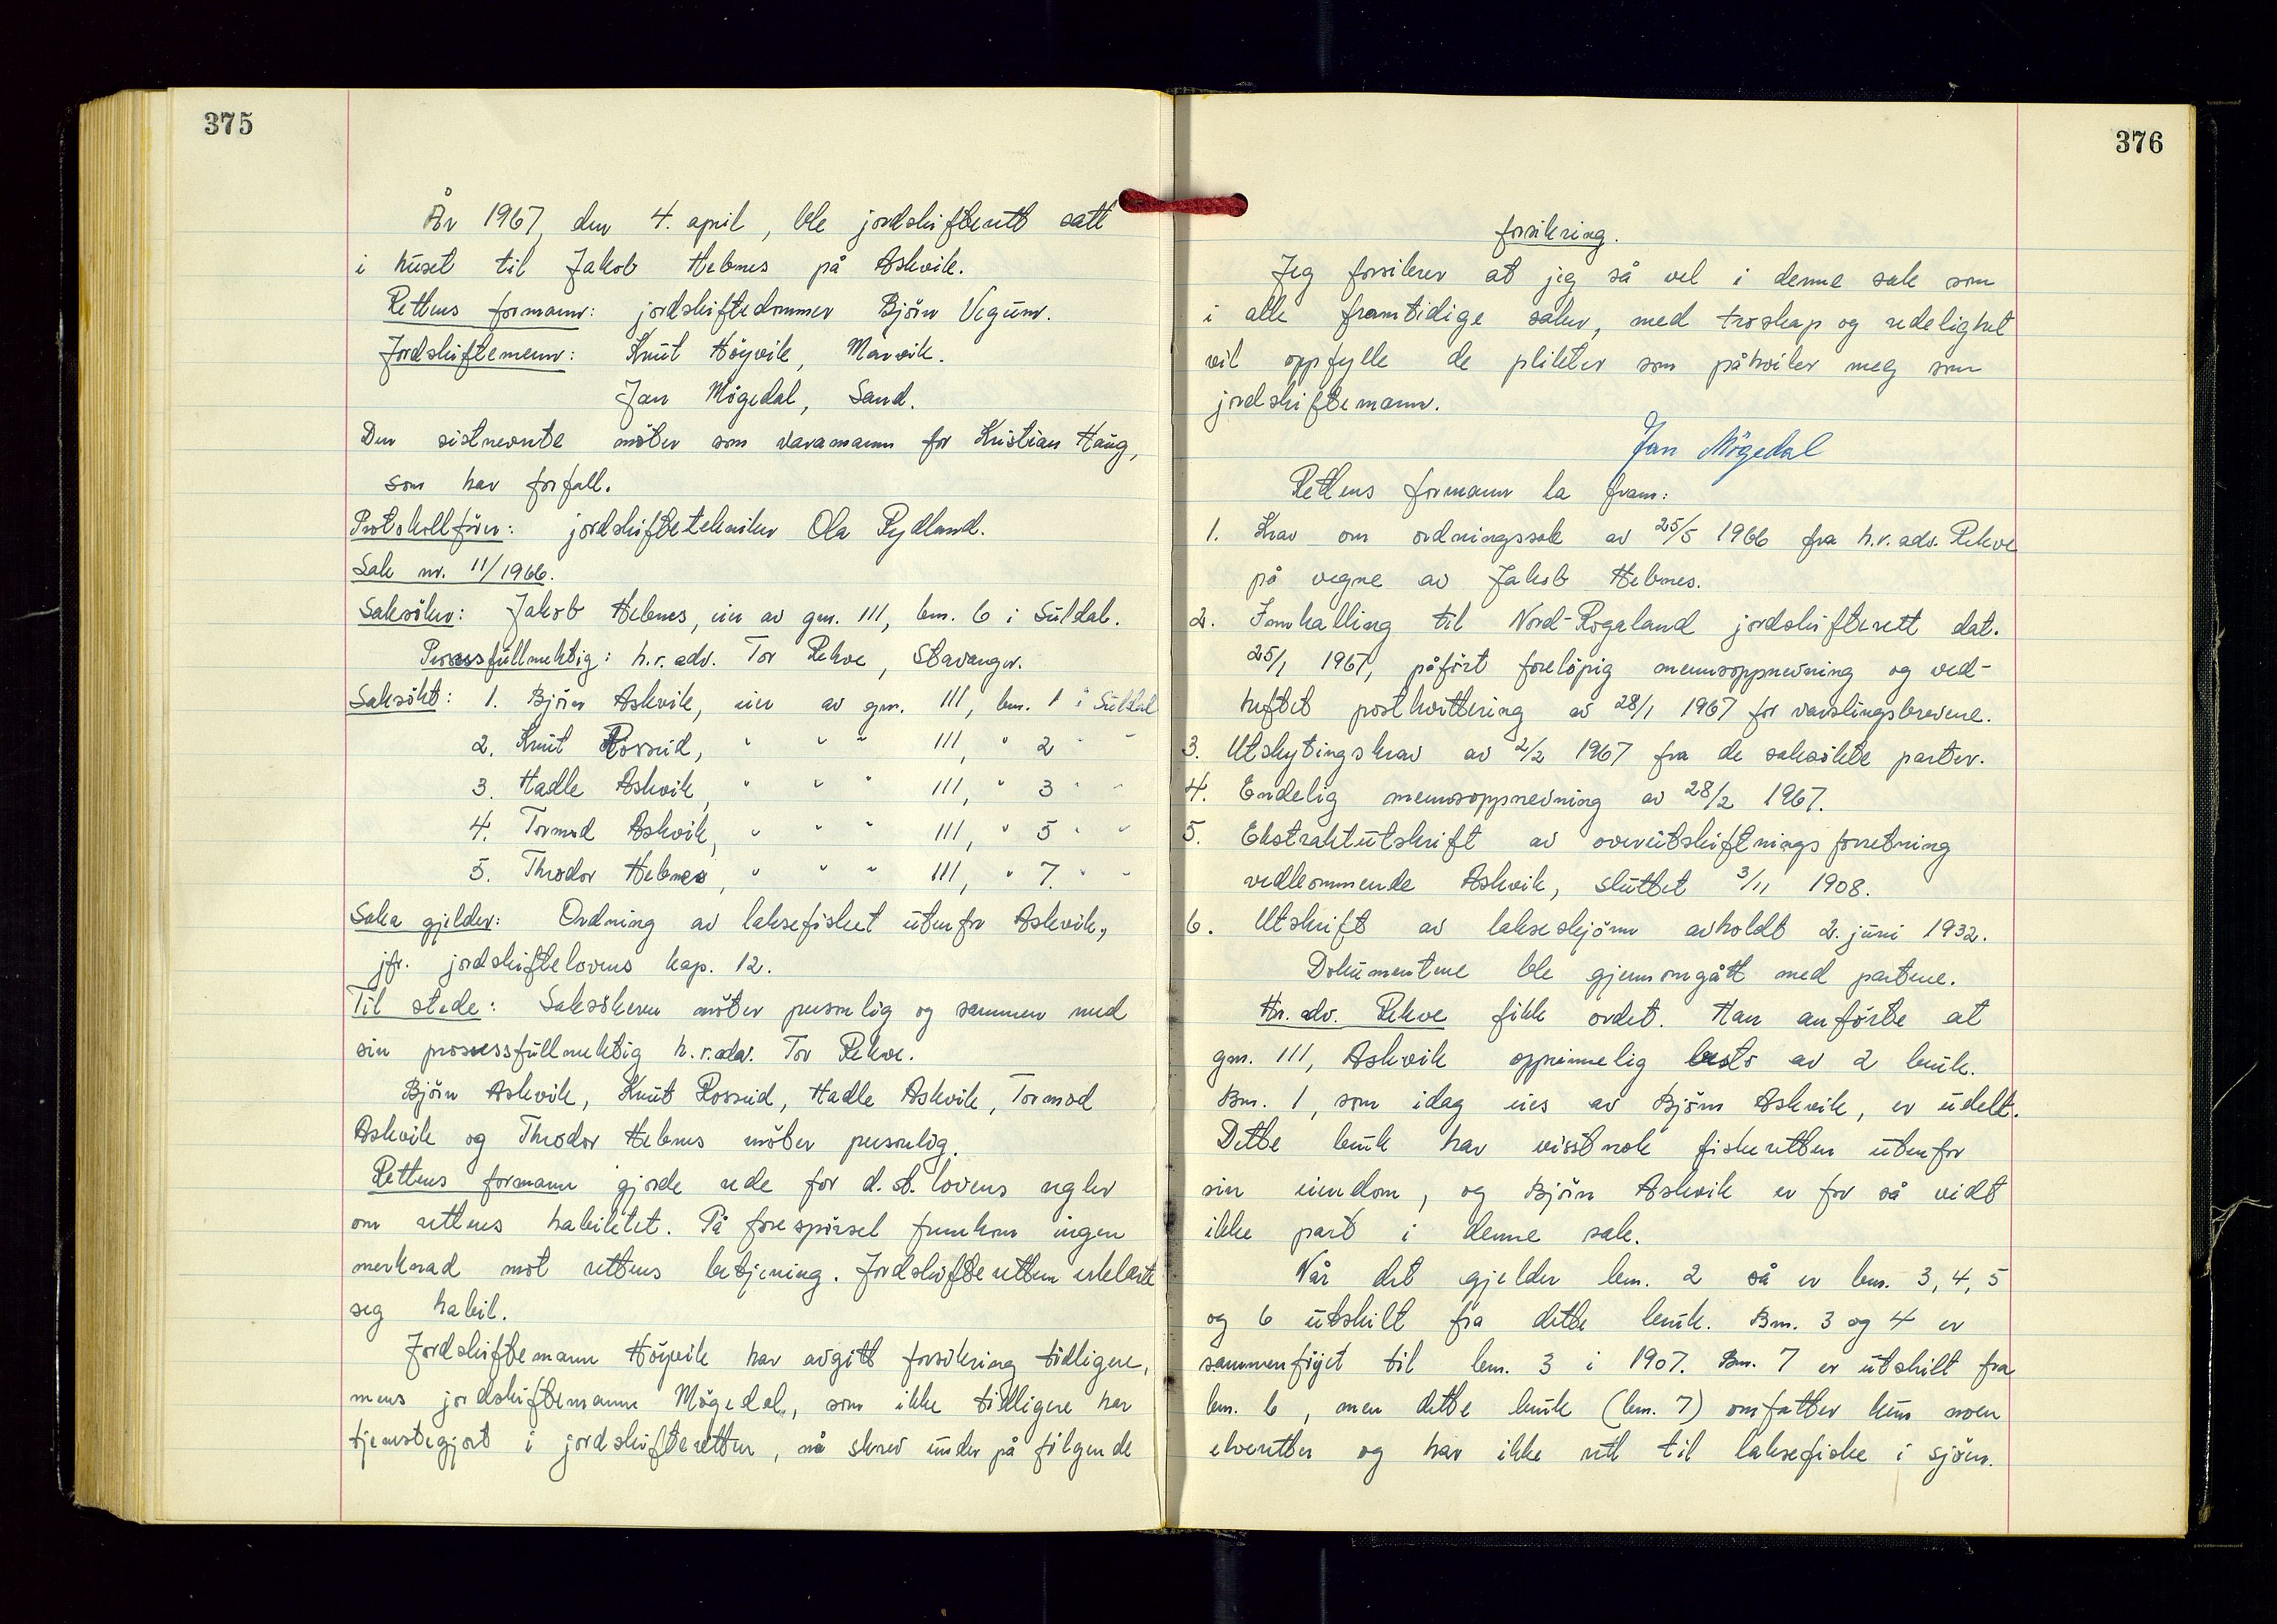 375
År 1967, den 4. april, ble jordskifterett satt
i huset til Jakob Hebnes på Askvik.
Rettens formann: jordskiftedommer Björn Vegum.
Jordskiftemenn: Knut Höyvik, Marvik.
Jan Mögedal, Sand.
Den sistnevnte möter som varamann for Kristian Haug,
som har forfall.
Protokollförer: jordskiftetekniker Ola Rydland.
Sak nr. 11/1966.
Saksöker: Jakob Hebnes, eier av gnr. 111, bnr. 6 i Suldal.
Prosessfullmektig: h.r.adv. Tor Rekve, Stavanger.
Saksökt: 1. Björn Askvik, eier av gnr. 111, bnr. 1 i Suldal
2. Knut Rosseid, " " " 111, " 2 " "
3. Hadle Askvik, " " " 111, " 3 " "
4. Tormod Askvik, " " " 111, " 5 " "
5. Theodor Hebnes, " " " 111, " 7. " "
Saka gjelder: Ordning av laksefisket utenfor Askvik,
jfr. jordskiftelovens kap. 12.
Til stede: Saksökeren möter personlig og sammen med
sin prosessfullmektig h.r.adv. Tor Rekve.
Björn Askvik, Knut Rosseid, Hadle Askvik, Tormod
Askvik og Theodor Hebnes möter personlig.
Rettens formann gjorde rede for d.st.lovens regler
om rettens habilitet. På forespörsel fremkom ingen
merknad mot rettens betjening. Jordskifteretten erklærte
seg habil.
Jordskiftemann Höyvik har avgitt forsikring tidligere,
mens jordskiftemann Mögedal, som ikke tidligere har
tjenstegjort i jordskifteretten, nå skrev under på fölgende
376
forsikring.
Jeg forsikrer at jeg så vel i denne sak som
i alle framtidige saker, med troskap og redelighet
vil oppfylle de plikter som påhviler meg som
jordskiftemann.
Jan Mögedal
Rettens formann la fram:
1. Krav om ordningssak av 25/5 1966 fra h.r.adv. Rekve
på vegne av Jakob Hebnes.
2. Innkalling til Nord-Rogaland jordskifterett dat.
25/1 1967, påfört forelöpig mennsoppnevning og ved-
heftet postkvittering av 28/1 1967 for varslingsbrevene.
3. Utskytingskrav av 2/2 1967 fra de saksökte parter.
4. Endelig mennsoppnevning av 28/2 1967.
5. Ekstraktutskrift av overutskiftningsforretning
vedkommende Askvik, sluttet 3/11 1908.
6. Utskrift av lakseskjönn avholdt 2. juni 1932.
Dokumentene ble gjennomgått med partene.
Hr. adv. Rekve fikk ordet. Han anförte at
gnr. 111, Askvik opprinnelig besto av 2 bruk.
Bnr. 1, som idag eies av Björn Askvik, er udelt.
Dette bruk har visstnok fiskeretten utenfor
sin eiendom, og Björn Askvik er for så vidt
ikke part i denne sak.
Når det gjelder bnr. 2 så er bnr. 3, 4, 5
og 6 utskilt fra dette bruk. Bnr. 3 og 4 er
sammenföyet til bnr. 3 i 1907. Bnr. 7 er utskilt fra
bnr. 6, men dette bruk (bnr. 7) omfatter kun noen
elveretter og har ikke rett til laksefiske i sjöen.